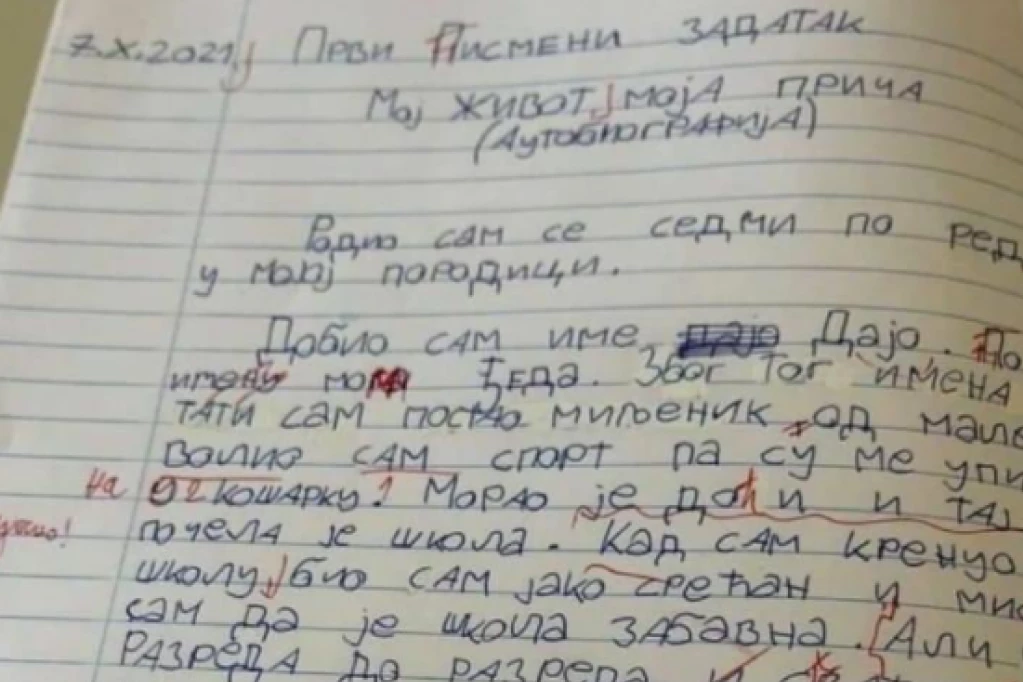 7.X.2021. Први Писмени задатак
Мој живот, моја прича
(Аутобиографија)
Родио сам се седми по ред
у мојој породици.
Добио сам име Дајо. По
имену мога ђеда. Због тог имена
тати сам постао миљеник од мале
волио сам спорт па су ме упи
на кошарку. Морао је доћи и тај
почела је школа. Кад сам кренуо
школу, био сам јако срећан и ми
сам да је школа забавна. Али
разреда до разреда